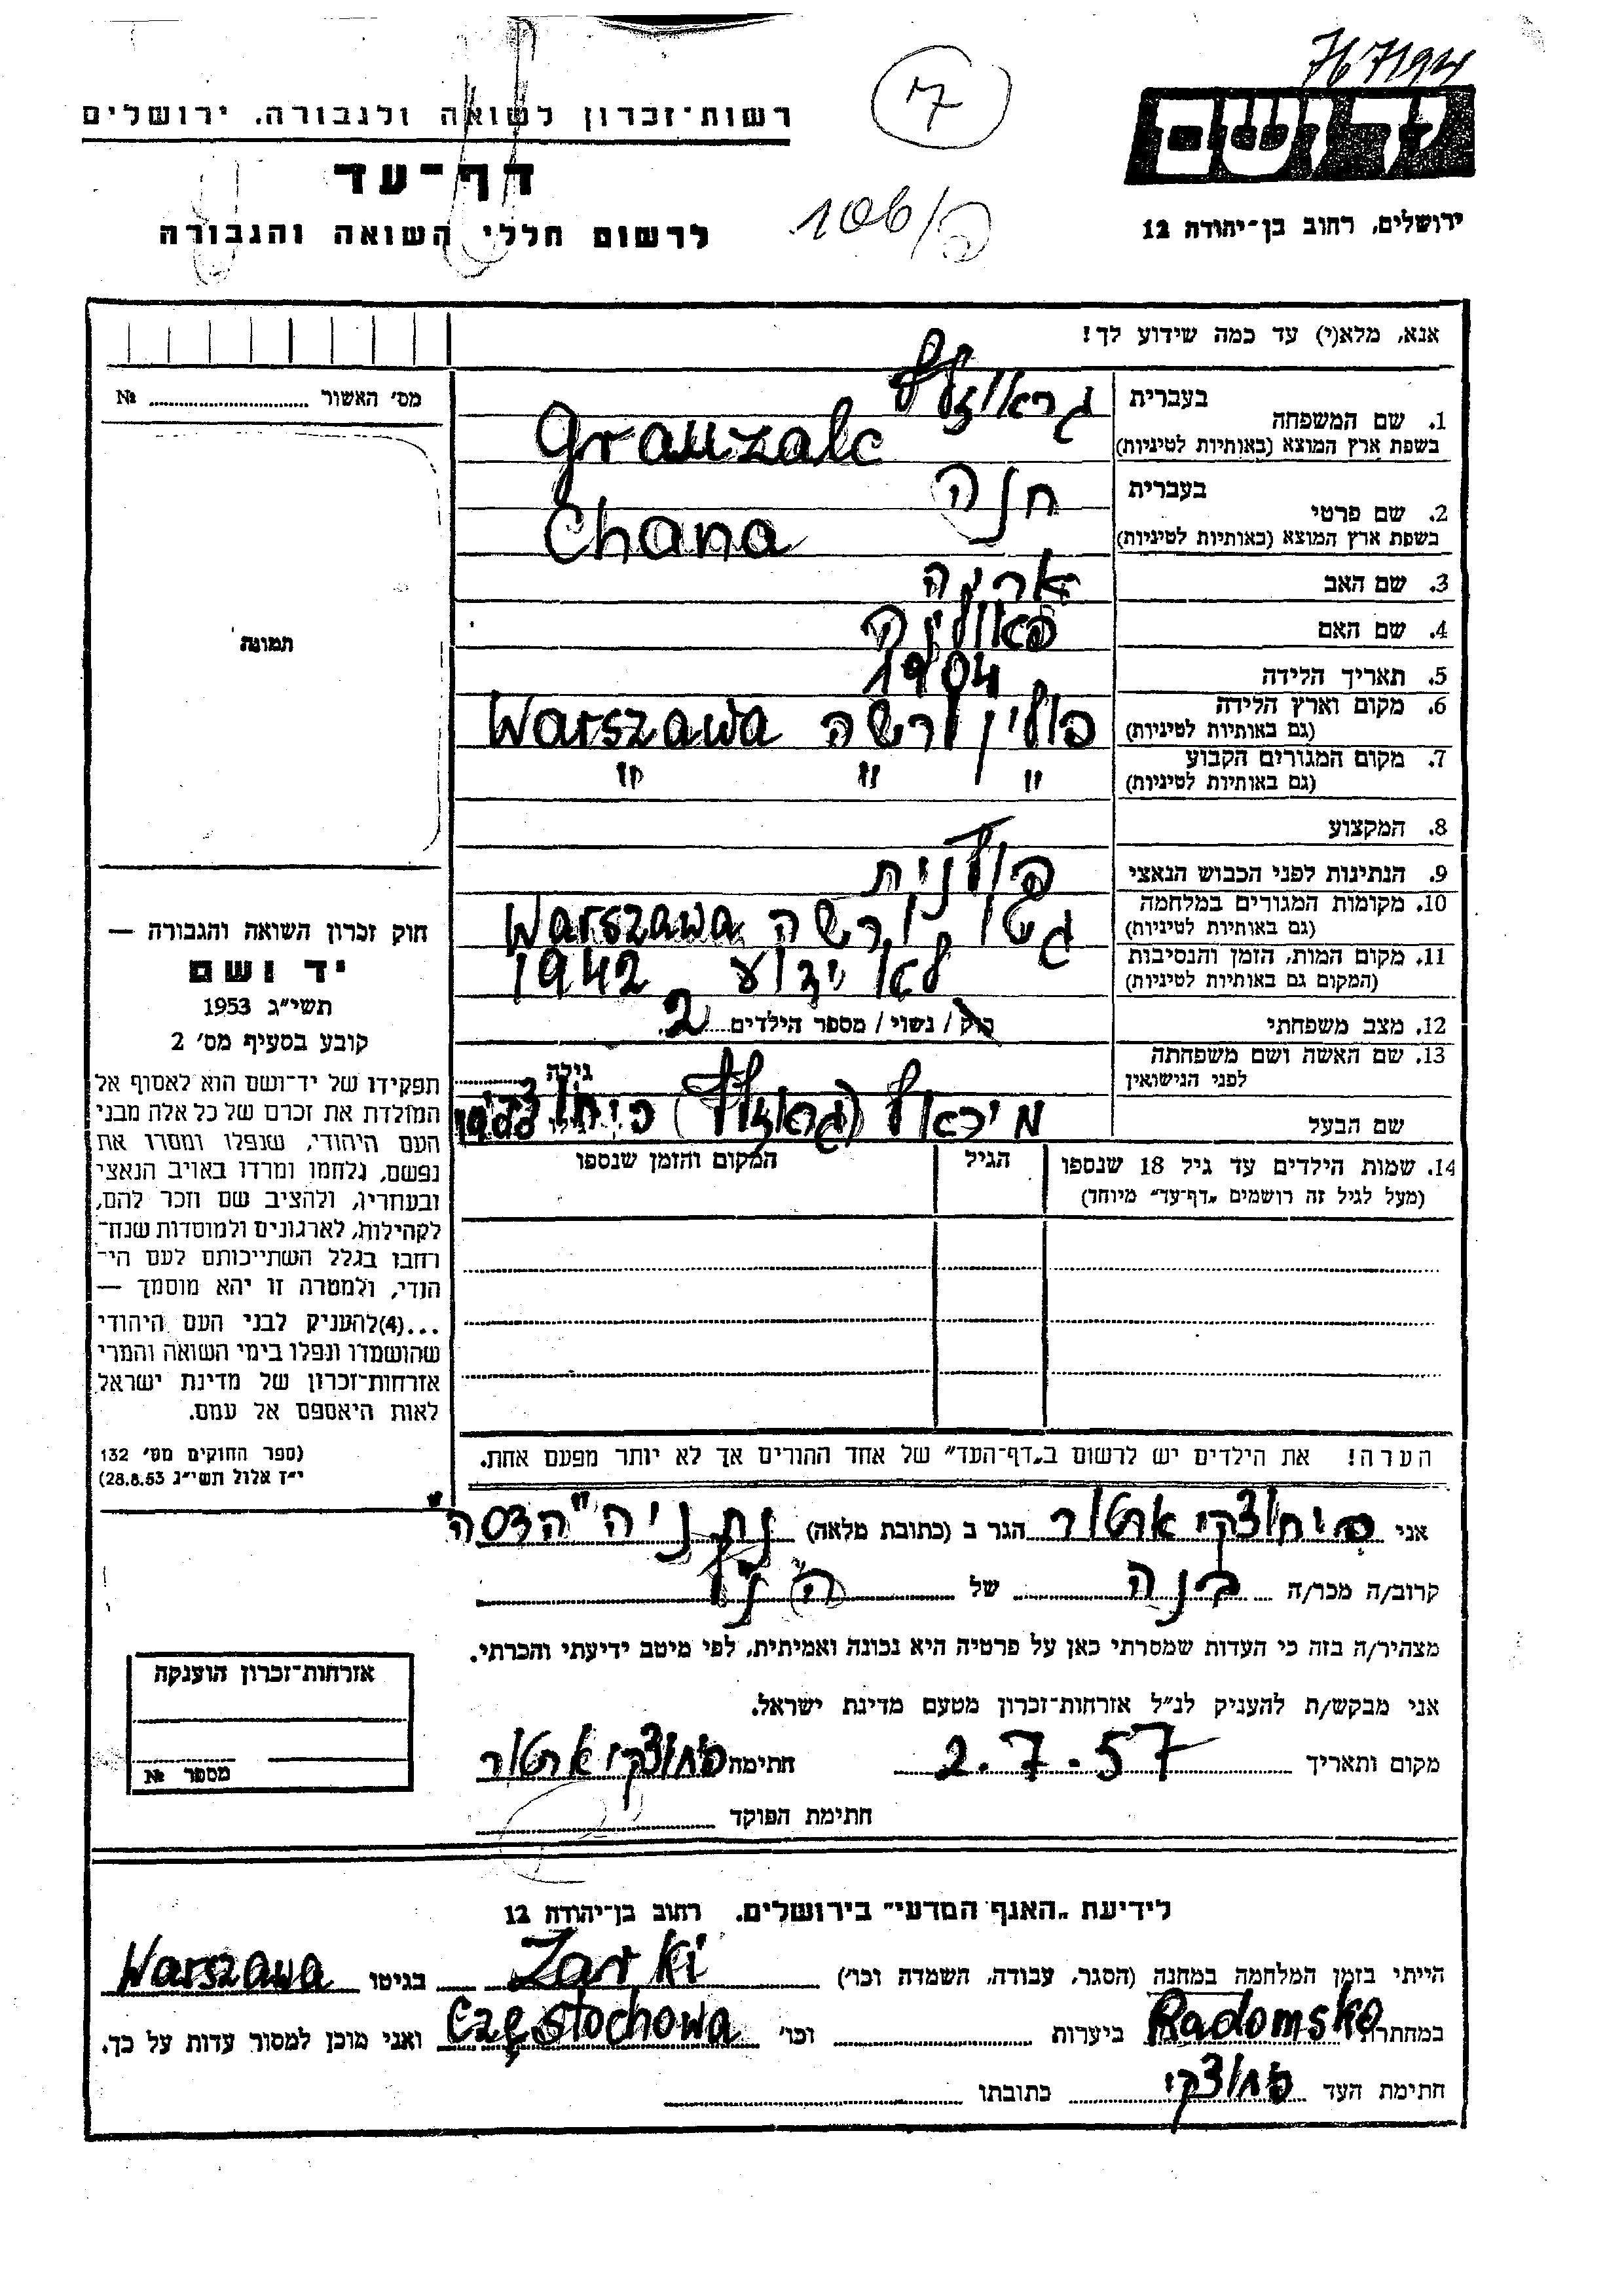 767194
יד ושם
ירושלים, רחוב בן־יהודה 12
7
106/פ
רשות־זכרון לשואה ולגבורה, ירושלים
דף־עד
לרשום חללי השואה והגבורה
אנא, מלא(י) עד כמה שידוע לך!
1. שם המשפחה
בעברית
בשפת ארץ המוצא (באותיות לטיניות)
Grauzalc
2. שם פרטי
בעברית חנה
בשפת ארץ המוצא (באותיות לטיניות) Chana
3. שם האב אריה
4. שם האם פאולינה
5. תאריך הלידה 1904
6. מקום וארץ הלידה
(גם באותיות לטיניות) פולין ורשה Warszawa
7. מקום המגורים הקבוע
(גם באותיות לטיניות) " " "
8. המקצוע
9. הנתינות לפני הכבוש הנאצי פולנית
10. מקומות המגורים במלחמה
(גם באותיות לטיניות) גטו ורשה Warszawa
11. מקום המות, הזמן והנסיבות
(המקום גם באותיות לטיניות) לא ידוע 1942
12. מצב משפחתי רוק / נשוי / מספר הילדים 2
13. שם האשה ושם משפחתה
לפני הנישואין
גילה
שם הבעל מיכאל
14. שמות הילדים עד גיל 18 שנספו
(מעל לגיל זה רושמים „דף־עד" מיוחד)
הגיל
המקום והזמן שנספו
הערה! את הילדים יש לרשום ב„דף־העד" של אחד ההורים אך לא יותר מפעם אחת.
מס׳ האשור № 
תמונה
חוק זכרון השואה והגבורה —
יד ושם
תשי"ג 1953
קובע בסעיף מס׳ 2
תפקידו של יד־ושם הוא לאסוף אל
המולדת את זכרם של כל אלה מבני
העם היהודי, שנפלו ומסרו את
נפשם, נלחמו ומרדו באויב הנאצי
ובעוזריו, ולהציב שם וזכר להם,
לקהילות, לארגונים ולמוסדות שנח־
רחבו בגלל השתייכותם לעם הי־
הודי, ולמטרה זו יהא מוסמך —
...(4)להעניק לבני העם היהודי
שהושמדו ונפלו בימי השואה והמרי
אזרחות־זכרון של מדינת ישראל
לאות היאספם אל עמם.
(ספר החוקים מס׳ 132
י"ז אלול תשי"ג 28.8.53)
אני ארטור הגר ב (כתובת מלאה) נתניה "הדסה"
קרוב/ה מכר/ה בנה של הנ"ל
מצהיר/ה בזה כי העדות שמסרתי כאן על פרטיה היא נכונה ואמיתית, לפי מיטב ידיעתי והכרתי.
אני מבקש/ת להעניק לנ"ל אזרחות־זכרון מטעם מדינת ישראל.
מקום ותאריך 2.7.57 חתימה ארטור
חתימת הפוקד
אזרחות־זכרון הוענקה
מספר №
לידיעת „האגף המדעי" בירושלים. רחוב בן־יהודה 12
הייתי בזמן המלחמה במחנה (הסגר, עבודה, השמדה וכו׳) Zarki בגיטו Warszawa
במחתרת Radomsko ביערות וכו׳ Częstochowa ואני מוכן למסור עדות על כך.
חתימת העד כתובתו